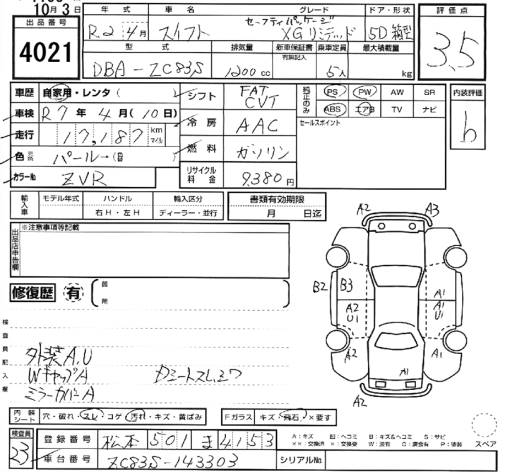 10月3日
年式 車名 グレード ドア・形状 評価点
出品番号 4021
R.2 年 4月 スイフト セーフティパッケージ XGリミテッド 5D箱型 3.5
型式 排気量 新車保証書 乗車定員 最大積載量
有無記入
DBA-ZC83S 1200cc 5人 kg
車歴 自家用・レンタ( )
車検 R7年4月(10日)
走行 17,187 km マイル
色 パール
カラーNo. ZVR
シフト FAT CVT
冷房 AAC
燃料 ガソリン
リサイクル料金 9,380円
純正のみ PS PW AW SR
ABS エアB TV ナビ
セールスポイント
内装評価 b
輸入車 モデル年式 ハンドル 輸入区分
右H・左H ディーラー・並行
書類有効期限
月 日迄
出品店申告欄 ※注意事項等記載
修復歴 有 箇所
検査員記入欄
外装A,U
WキャップA
ミラーカバーA
A2 A3
B2 B3 A1
A2 U1 A1 U1
A2 A1
A1
A2
内装シート 穴・破れ・スレ・コゲ・汚れ・キズ・黄ばみ
Fガラス キズ・飛石・×要す
検査員 23
登録番号 松本 501 ま 4153
車台番号 ZC83S-143303
シリアルNo.
A:キズ B:キズ&ヘコミ S:サビ
スペア